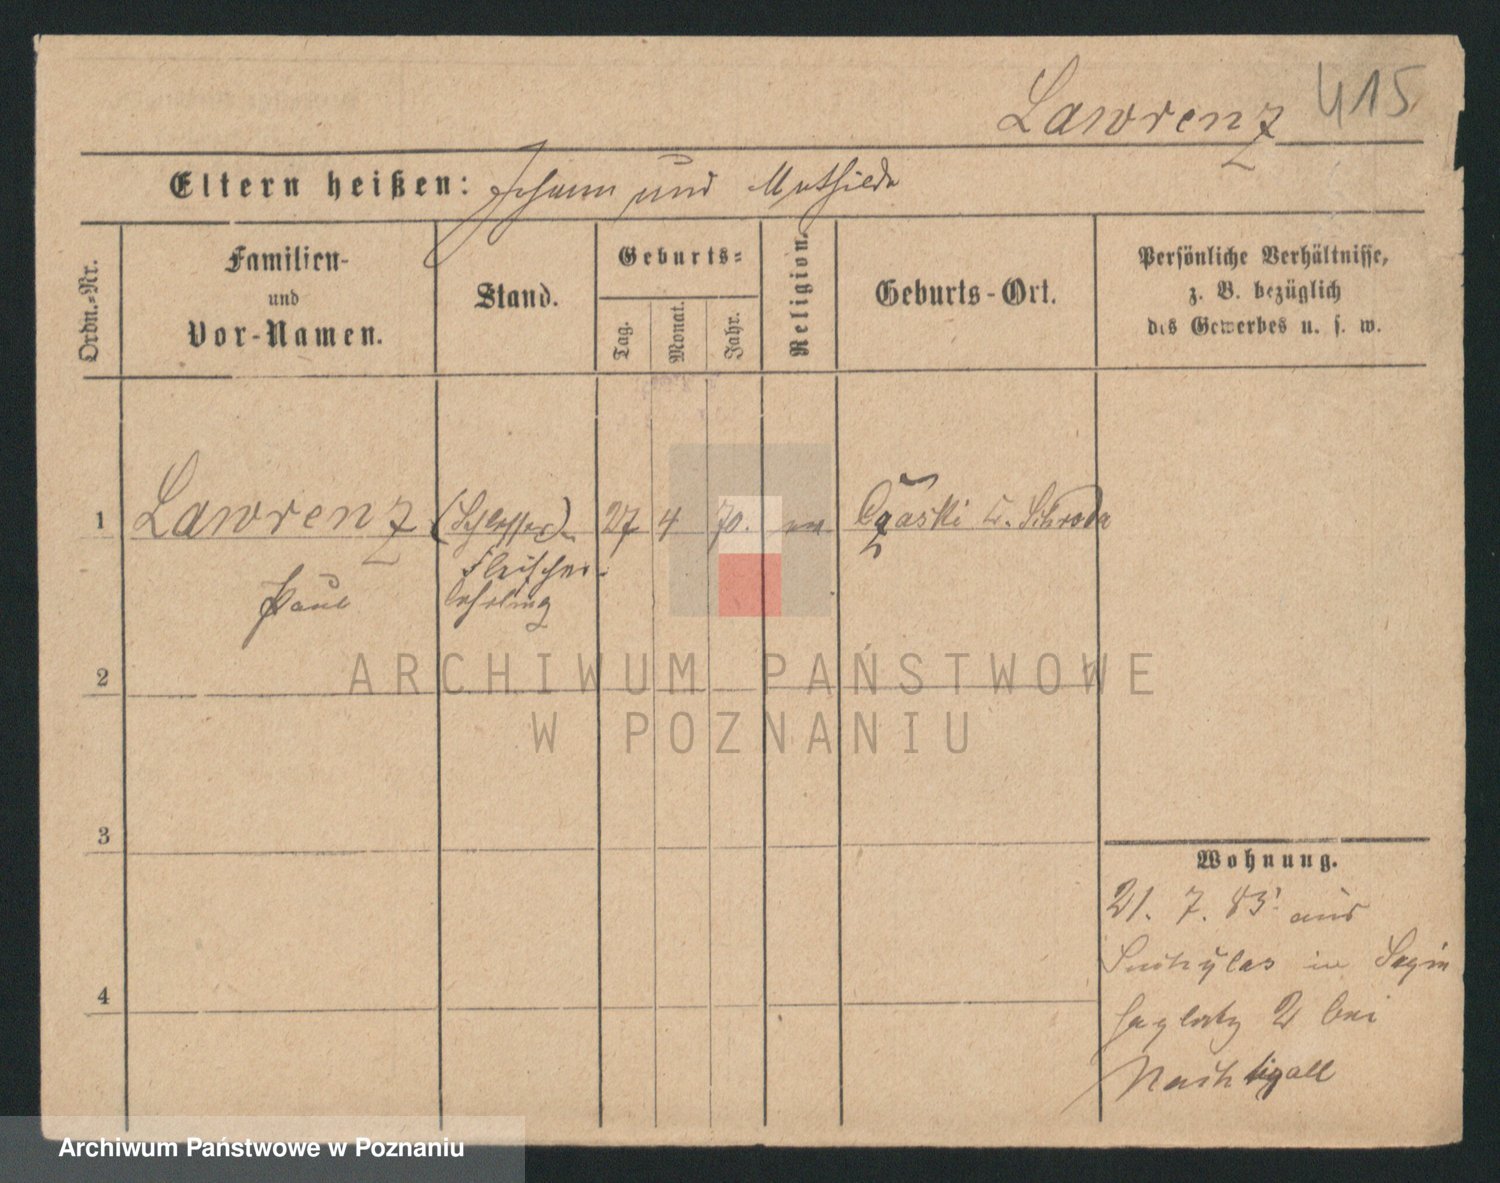 Lawrenz 415
Eltern heißen: Johann und Mathilde
Ordn.-Nr.
Familien-
und
Vor-Namen.
Stand.
Geburts-
Tag.
Monat.
Jahr.
Religion.
Geburts-Ort.
Persönliche Verhältnisse,
z. B. bezüglich
des Gewerbes u. s. w.
1 Lawrenz (Schlosser) 27 4 70. Schroda
Fleischer-
Paul lehrling
2
ARCHIWUM PAŃSTWOWE
W POZNANIU
3
Wohnung.
21. 7. 85 aus
in
4
2 bei
Nachtigall
Archiwum Państwowe w Poznaniu